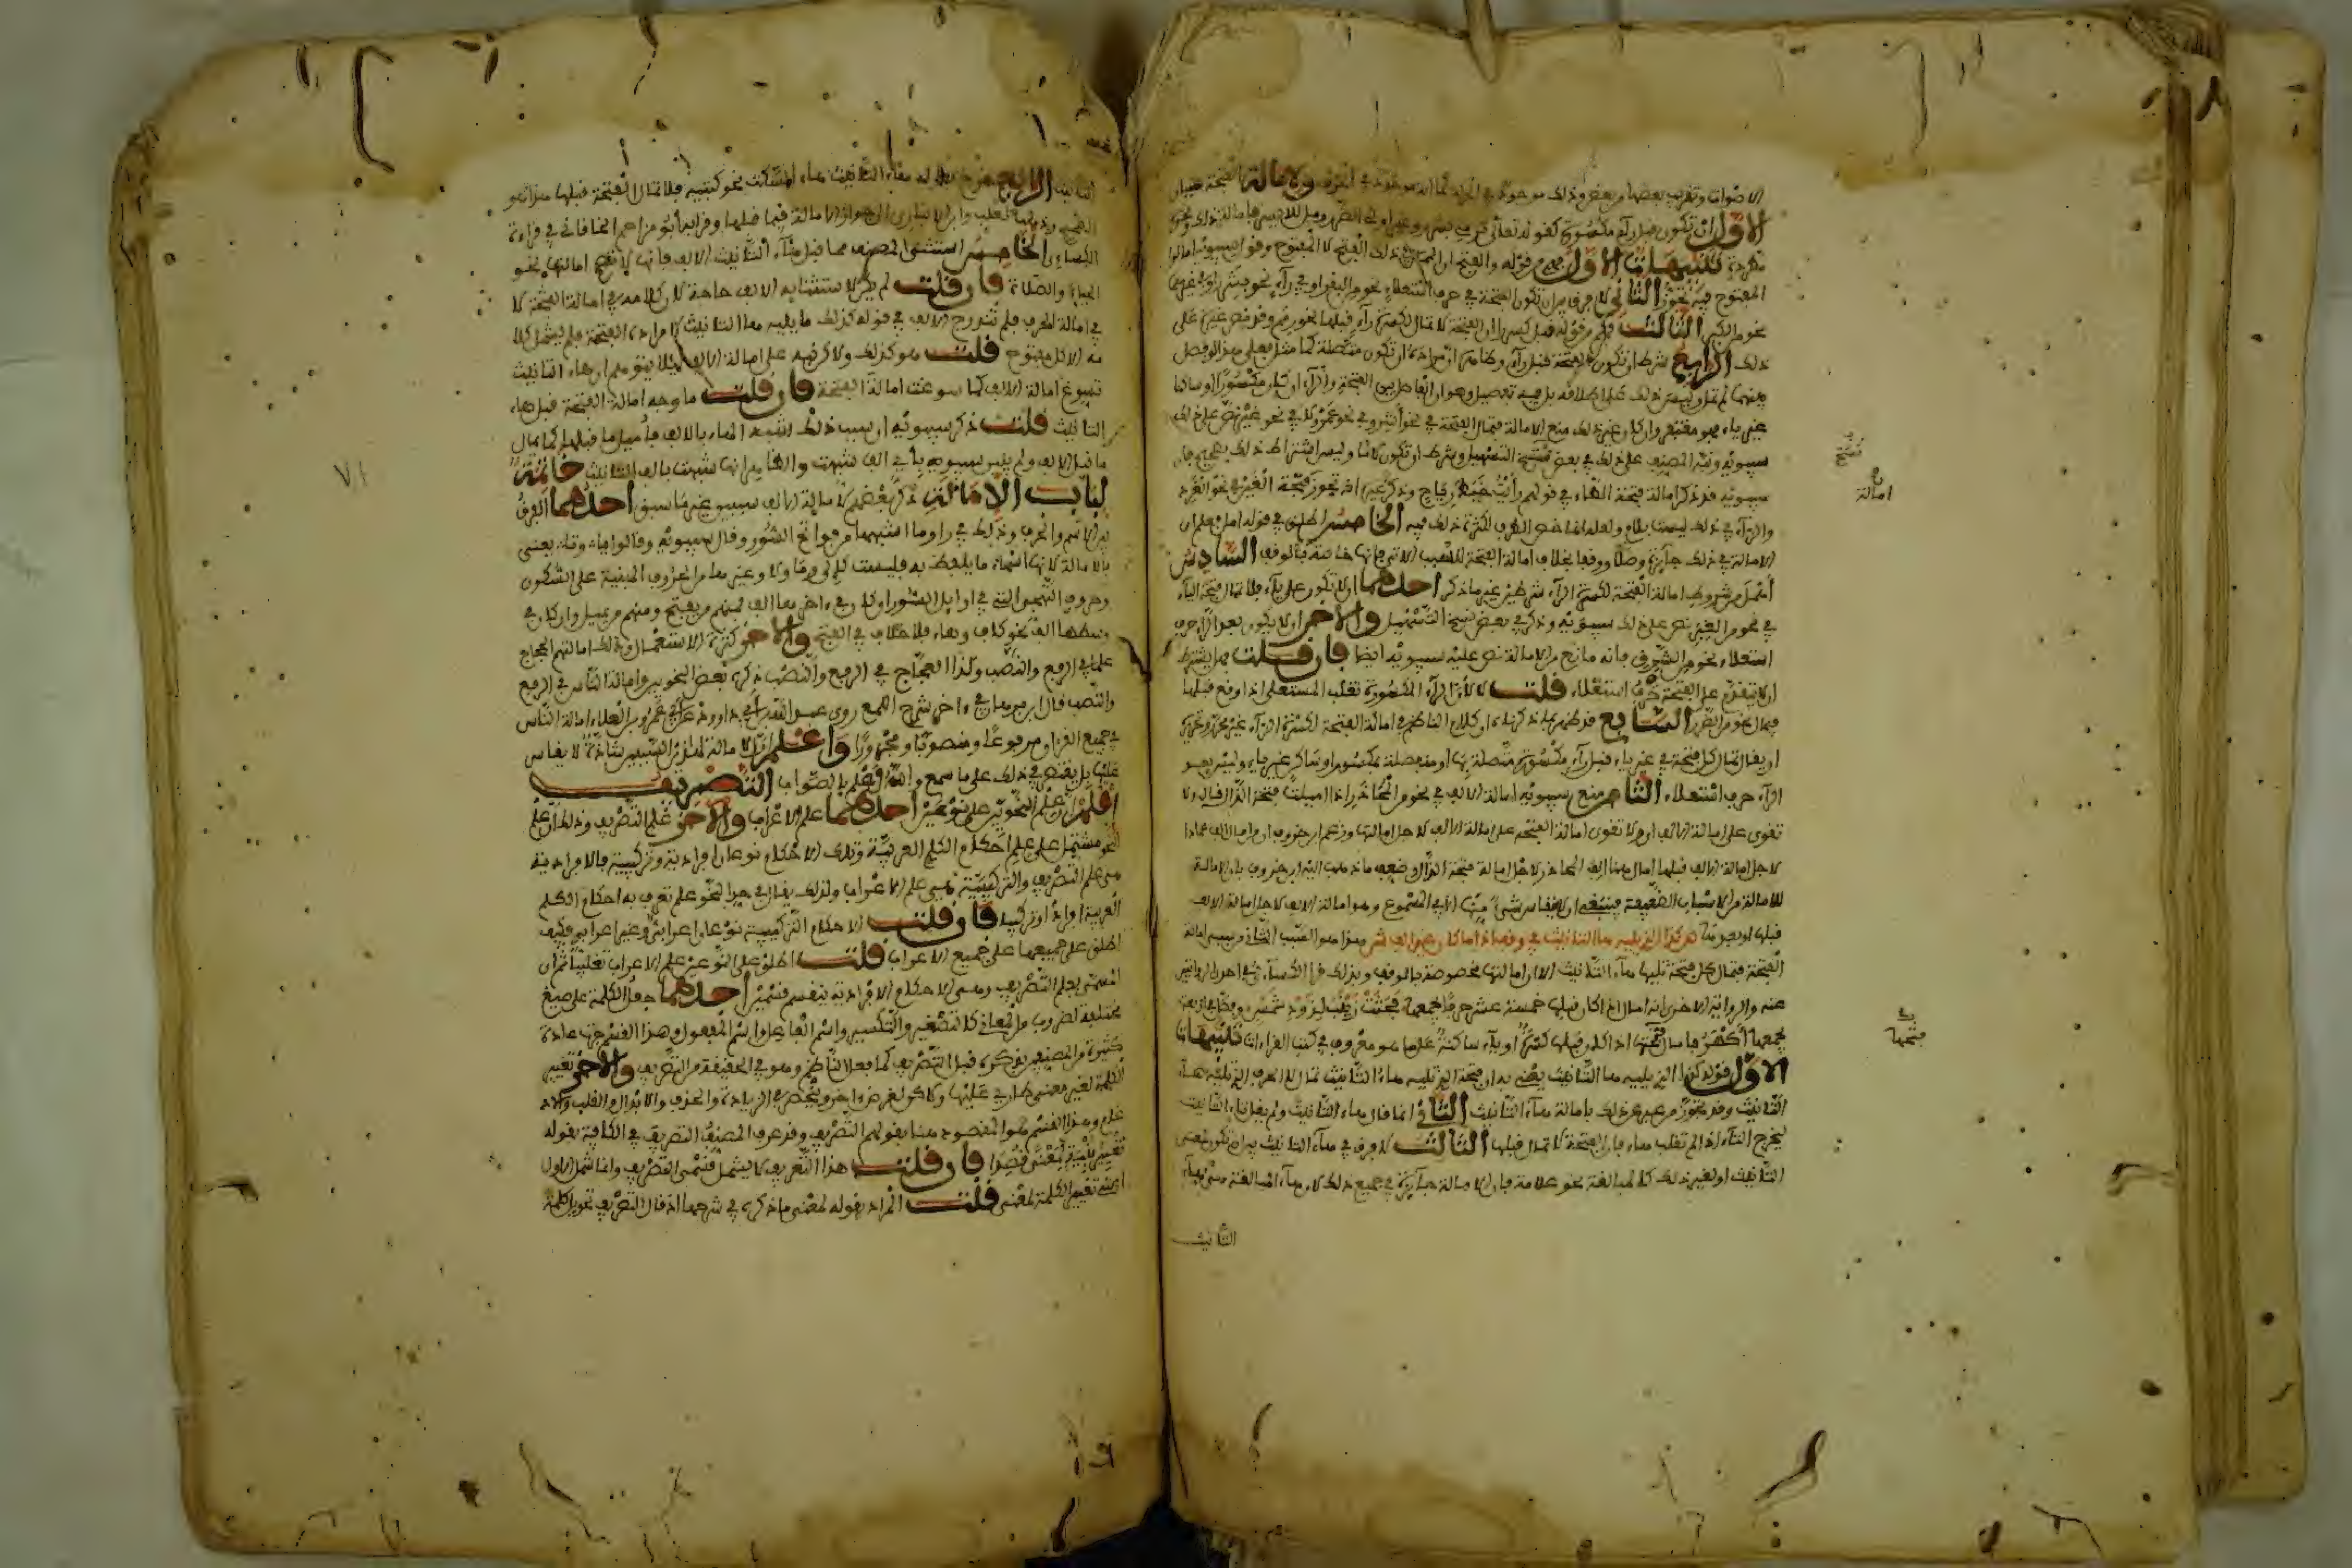 الاصوات وتقريب بعضها من بعض وذلك موجود في الحركة كما انه موجود في الحرف ولامالة الفتحة سببان
الاول ان تكون قبل راء مكسورة كقوله تعالى ترمي بشرر وغير اولي الضرر
تنبيهات الاول فهم من قوله والفتح ان الممال في ذلك الفتح لا المفتوح وقول سيبويه امالوا
المفتوح فيه تجوز الثاني لا فرق بين ان تكون الفتحة في حرف استعلاء نحو من البقر او في راء نحو بشرر او في غيرهما
نحو من الكبر الثالث فهم من قوله قبل كسر راء ان الفتحة لا تمال لكسرة راء قبلها نحو رمم وقد نص غيره على
ذلك الرابع شرط ان تكون الفتحة قبل راء وظاهره ان مراده ان تكون متصلة كما مثل فلو فصل
بينهما لم تمل وليس ذلك على اطلاقه بل فيه تفصيل وهو ان الفاصل بين الفتحة والراء ان كان مكسورا او ساكنا
غير ياء فهو مغتفر وان كان غير ذلك منع الامالة فتمال الفتحة في نحو اشر وفي نحو عمرو لا في نحو بجير نص على ذلك
سيبويه ونبه المصنف على ذلك في بعض نسخ التسهيل وشرط ان تكون لاما وليس اشتراط ذلك بصحيح فان
سيبويه قد ذكر امالة فتحة الطاء في قولهم رايت خبط رياح وذكر غيره انه تجوز فتحة العين في نحو العرد
والراء في ذلك ليست بلام ولعله انما خص الطرف لكثرة ذلك فيه الخامس اطلق في قوله امل فعلم ان
الامالة في ذلك جائزة وصلا ووقفا بخلاف امالة الفتحة للسبب الاتي فانها خاصة بالوقف السادس
اهمل من شروط امالة الفتحة لكسرة الراء شرطين غير ما ذكر احدهما ان لا تكون على ياء فلا تمال فتحة الياء
في نحو من الغير نص على ذلك سيبويه وذكره في بعض نسخ التسهيل والاخر ان لا يكون بعد الراء حرف
استعلاء نحو من الشرق فانه مانع من الامالة نص عليه سيبويه ايضا فان قلت فهل يشترط
ان لا يتقدم على الفتحة حرف استعلاء قلت لا لان الراء المكسورة تغلب المستعلي اذا وقع قبلها
فيمال نحو من الضرر السابع قد ظهر بما ذكرناه ان كلام الناظم في امالة الفتحة لكسرة الراء غير محرر وتحريره
ان يقال تمال كل فتحة في غير ياء قبل راء مكسورة متصلة بها او منفصلة بمكسور او ساكن غير ياء وليس بعد
الراء حرف استعلاء الثامن منع سيبويه امالة الالف في نحو من المحاذر اذا اميلت فتحة الذال قال ولا
تقوى على امالة الالف اي ولا تقوى امالة الفتحة على امالة الالف لاجل امالتها وزعم ابن خروف ان من امال الف عمادا
لاجل امالة الالف قبلها امال هنا الف المحاذر لاجل امالة فتحة الذال وضعف ما ذهب اليه ابن خروف بان الامالة
للامالة من الاسباب الضعيفة فينبغي ان لا ينقاس شيء منها الا في المسموع وهو امالة الالف لاجل امالة الالف
قبلها او بعدها كذا الذي يليه ها التانيث في وقف اذا ما كان غير الف ش هذا هو السبب الثاني من سببي امالة
الفتحة فتمال كل فتحة تليها هاء التانيث الا ان امالتها مخصوصة بالوقف وبذلك قرا الكسائي في احدى الروايتين
عنه والرواية الاخرى انه امال اذا كان قبلها خمسة عشر حرفا يجمعها فجثت زينب لذود شمس
يجمعها اكهر فامال فتحتها اذا كان قبلها كسرة او ياء ساكنة على ما هو معروف في كتب القراءات تنبيهات
الاول قوله كذا الذي يليه ها التانيث يعني به ان فتحة الذي تليه هاء التانيث تمال لان الحرف الذي تليه هاء
التانيث وقد تجوز من عبر عن ذلك بامالة هاء التانيث الثاني انما قال هاء التانيث ولم يقل تاء التانيث
ليخرج التاء اذا لم تقلب هاء فان الفتحة لا تمال قبلها الثالث لا فرق في هاء التانيث بين ان تكون لمعنى
التانيث او لغير ذلك كالمبالغة نحو علامة فان الامالة جائزة في جميع ذلك لان هاء المبالغة
التانيث
نسخ
امالة
فتحها
التانيث الرابع هاء السكت نحو كتابيه فلا تمال الفتحة قبلها
الصحيح وذهب ثعلب وابن الانباري الى جواز الامالة فيما قبلها وقرا به ابو مزاحم الخاقاني في قراءة
الكسائي الخامس استثنى المصنف مما قبل هاء التانيث الالف فانها لا تصح امالتها نحو
الحياة والصلاة فان قلت لم يكن لاستثنائه الالف حاجة لان كلامه في امالة الفتحة لا
في امالة الحرف فلم تندرج الالف في قوله كذلك ما يليه ها التانيث
قلت هو كذلك ولاكن نبه على امالة الالف ليلا يتوهم ان هاء التانيث
تسوغ امالة الالف كما سوغت امالة الفتحة فان قلت ما وجه امالة الفتحة قبل هاء
التانيث قلت ذكر سيبويه ان سبب ذلك شبه الهاء بالالف فاميل ما قبلها كما يمال
ما قبل الالف ولم يبين سيبويه باي الف شبهت والظاهر انها شبهت بالف التانيث خاتمة
لباب الامالة ذكر بعضهم لامالة الالف سببين غير ما سبق احدهما الفرق
بين الاسم والحرف وذلك في را وما اشبهها من فواتح السور وقال سيبويه وقالوا با وتا يعني
بالامالة لانها اسماء ما يلفظ به فليست كالى وما ولا وغيرها من الحروف المبنية على السكون
وحروف التهجي التي في اوايل السور ان كان في اخرها الف فمنهم من يفتح ومنهم من يميل وان كان في
وسطها الف نحو كاف وصاد فلا خلاف في الفتح والاخر كثرة الاستعمال وذلك امالتهم الحجاج
علما في الرفع والنصب وكذا العجاج في الرفع والنصب ذكره بعض النحويين وامالة الناس في الرفع
والنصب قال ابن برهان في اخر شرح اللمع روى عبد الله بن داود عن ابي عمرو بن العلاء امالة الناس
في جميع القران مرفوعا ومنصوبا ومجرورا واعلم ان الامالة لهذين السببين شاذة لا يقاس
عليها بل يقتصر في ذلك على ما سمع والله اعلم بالصواب التصريف
اعلم ان علم النحويين على نوعين احدهما علم الاعراب والاخر علم التصريف وذلك ان علم
النحو مشتمل على علم احكام الكلم العربية وتلك الاحكام نوعان افرادية وتركيبية فالافرادية
هي علم التصريف والتركيبية هي علم الاعراب ولذلك يقال في حد النحو علم تعرف به احكام الكلم
العربية افرادا وتركيبا فان قلت الاحكام التركيبية نوعان اعرابي وغير اعرابي فكيف
اطلق على جميعها علم الاعراب قلت اطلق على النوعين علم الاعراب تغليبا ثم ان
المسمى بعلم التصريف وهي الاحكام الافرادية ينقسم قسمين احدهما جعل الكلمة على صيغ
مختلفة لضروب من المعاني كالتصغير والتكسير واسم الفاعل واسم المفعول وهذا القسم جرت عادة
كثير من المصنفين بذكره قبل التصريف كما فعل الناظم وهو في الحقيقة من التصريف والاخر تغيير
الكلمة لغير معنى طارئ عليها ولاكن لغرض اخر وينحصر في الزيادة والحذف والابدال والقلب
وهذا القسم هو المقصود هنا بقولهم التصريف وقد عرف المصنف التصريف في الكافية بقوله
تغيير بنية لمعنى قصدا فان قلت هذا التعريف لا يشمل قسمي التصريف وانما شمل الاول
اعني تغيير الكلمة لمعنى قلت المراد بقوله لمعنى ما ذكره في شرحها اذ قال التصريف تحويل الكلمة